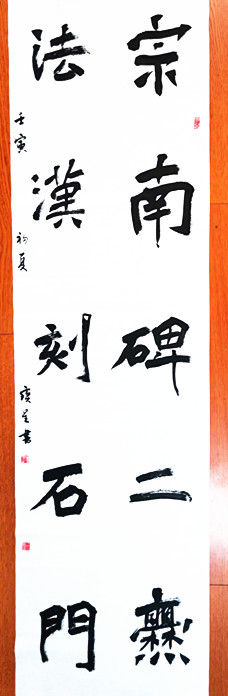 宗南碑二爨
法漢刻石門
壬寅初夏
書